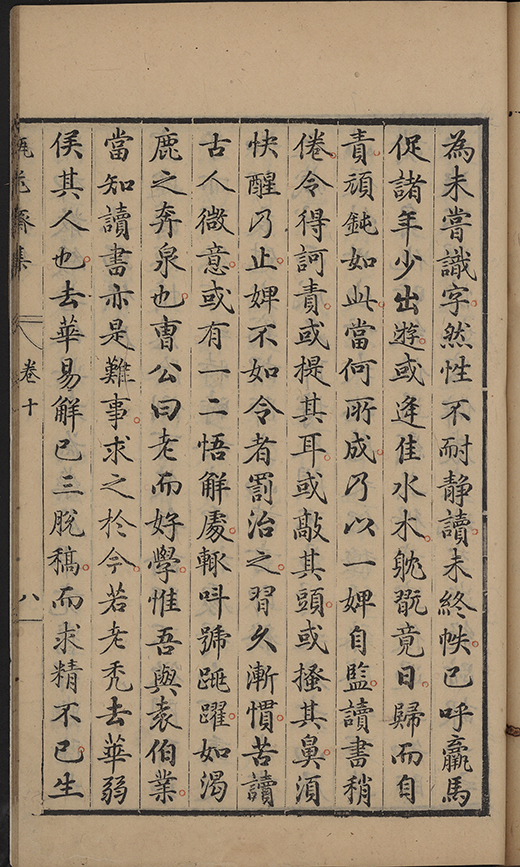 為未嘗識字然性不耐静讀未終帙已呼羸馬
促諸年少出遊或逄佳水木躭翫竟日歸而自
責頑鈍如此當何所成乃以一婢自監讀書稍
倦令得訶責或提其耳或敲其頭或搔其鼻湏
快醒乃止婢不如令者罰治之習久漸慣苦讀
古人微意或有一二悟解處輙呌號跳躍如渴
鹿之奔泉也曹公曰老而好學惟吾與袁伯業
當知讀書亦是難事求之於今若老禿去華弱
侯其人也去華易解已三脫稿而求精不已生
卷十
八